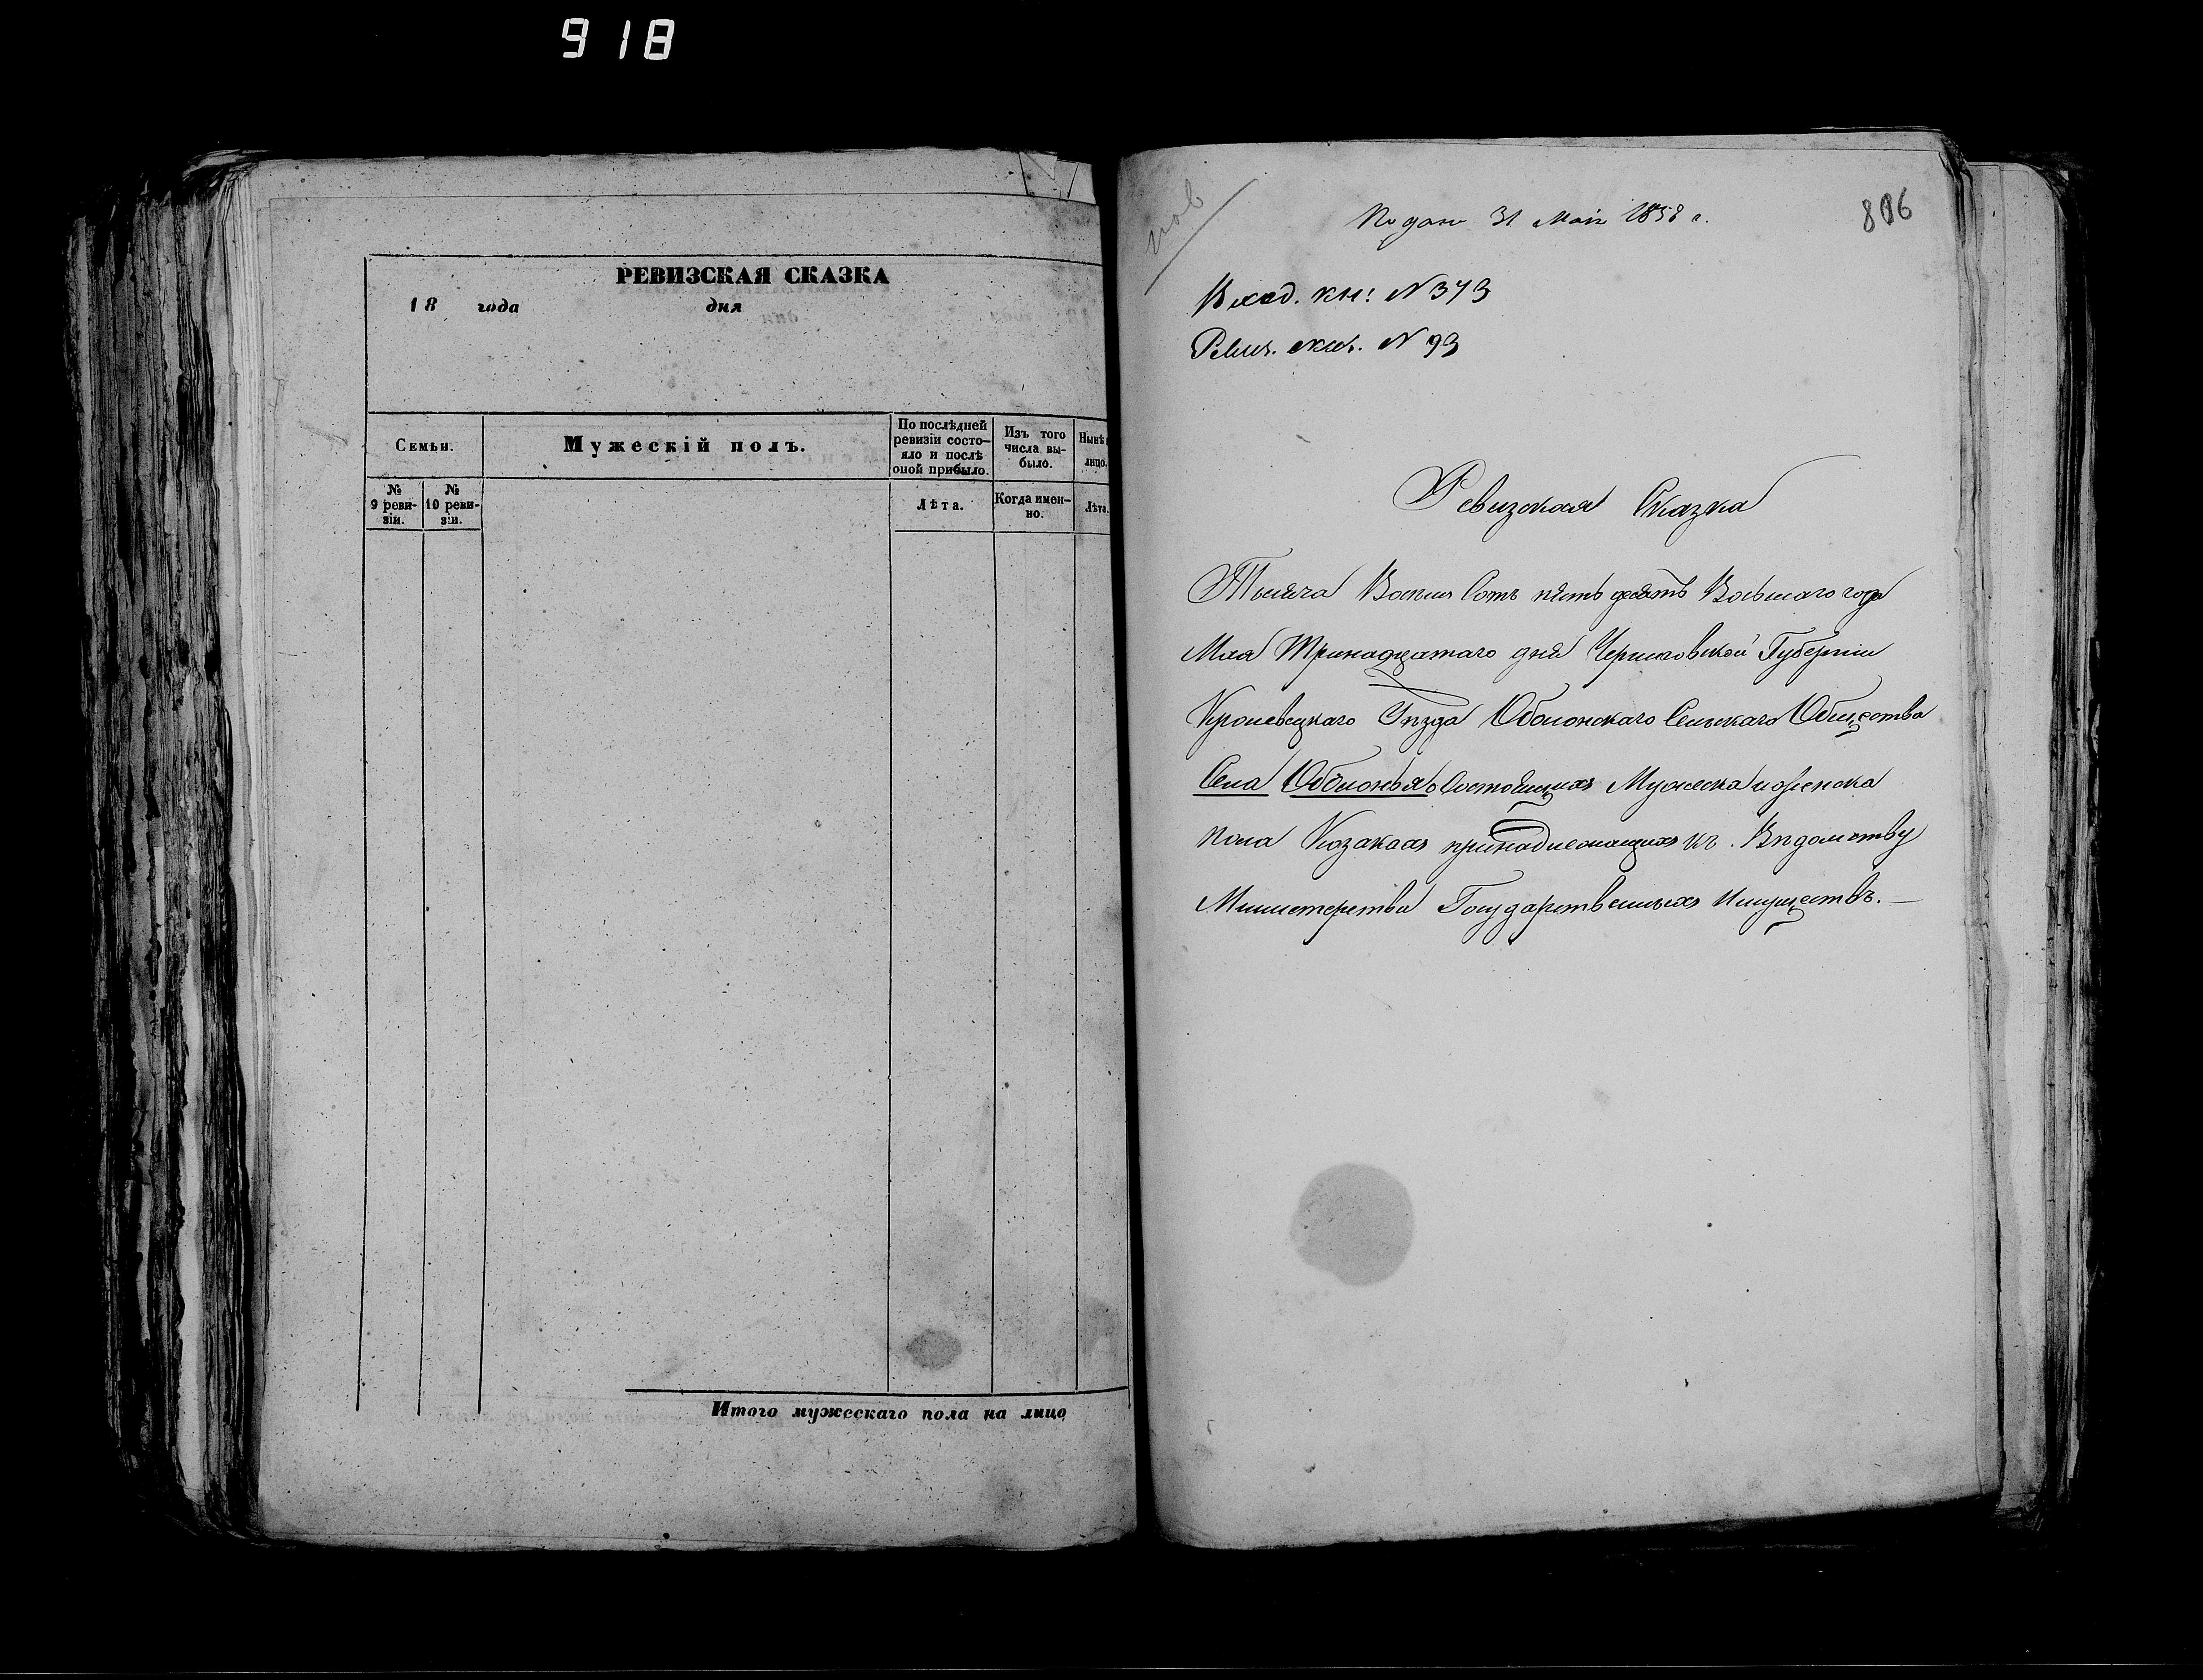 918
РЕВИЗСКАЯ СКАЗКА
18 года дня
Семьи.
Мужескій полъ.
По послѣдней ревизіи состо-
яло и послѣ
оной прибыло.
Изъ того
числа вы-
было.
Нынѣ
лицо.
№
9 реви-
зіи.
№
10 реви-
зіи.
Лѣта.
Когда имен-
но.
Лѣта.
Итого мужескаго пола на лицо
Подано 31 Маія 1858 г.
816
Вход. кн: N 373
Ревиз. скиз. N 93
Ревизская Сказка
Тысяча Восемь Сотъ пять десятъ Восьмаго года
Мая Тринадцатаго дня Черниговской Губерніи
Кролевецкаго Уѣзда Оболонскаго Сельскаго Общества
Села Оболонья о Состоящихъ Мужеска и женска
пола Козакахъ принадлежащихъ къ Вѣдомству
Министерства Государственныхъ Имуществъ. —